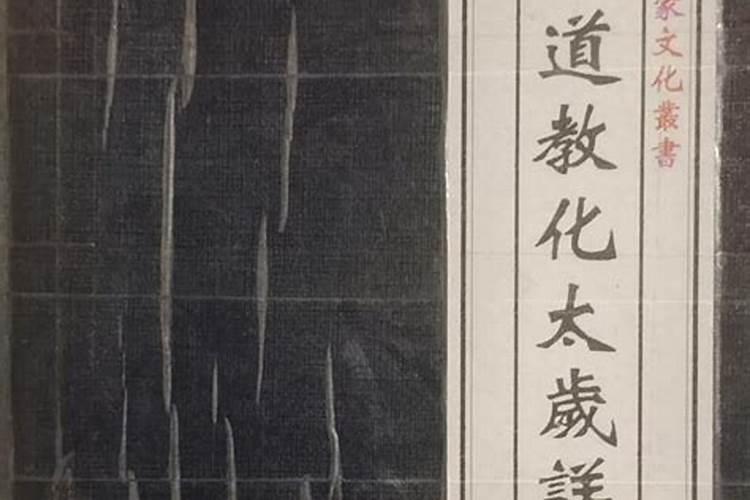 家文化叢書
道教化太歲詳